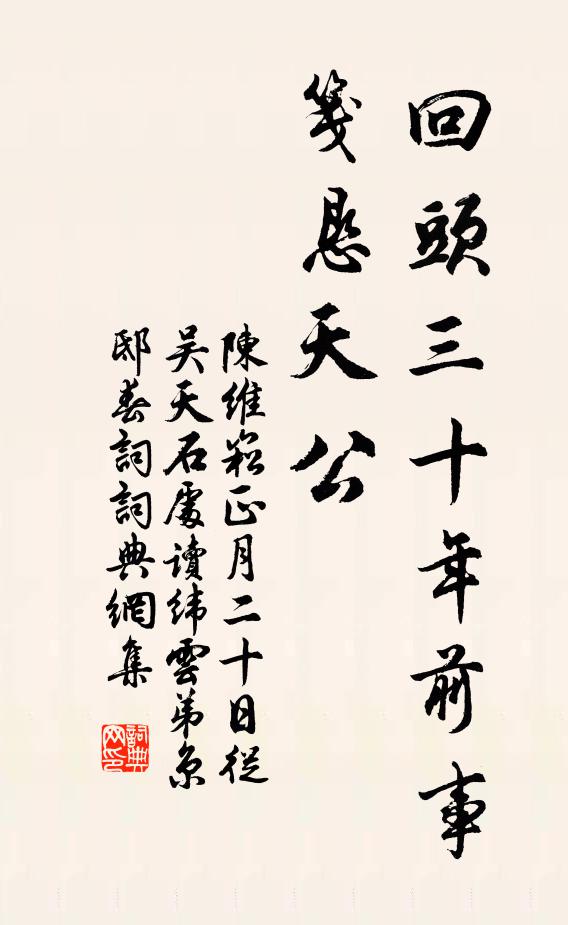 回頭三十年前事
箋懇天公
陳維崧正月二十日從
吴天石處讀緯雲弟京
邸春詞詞典網集
詞典網印